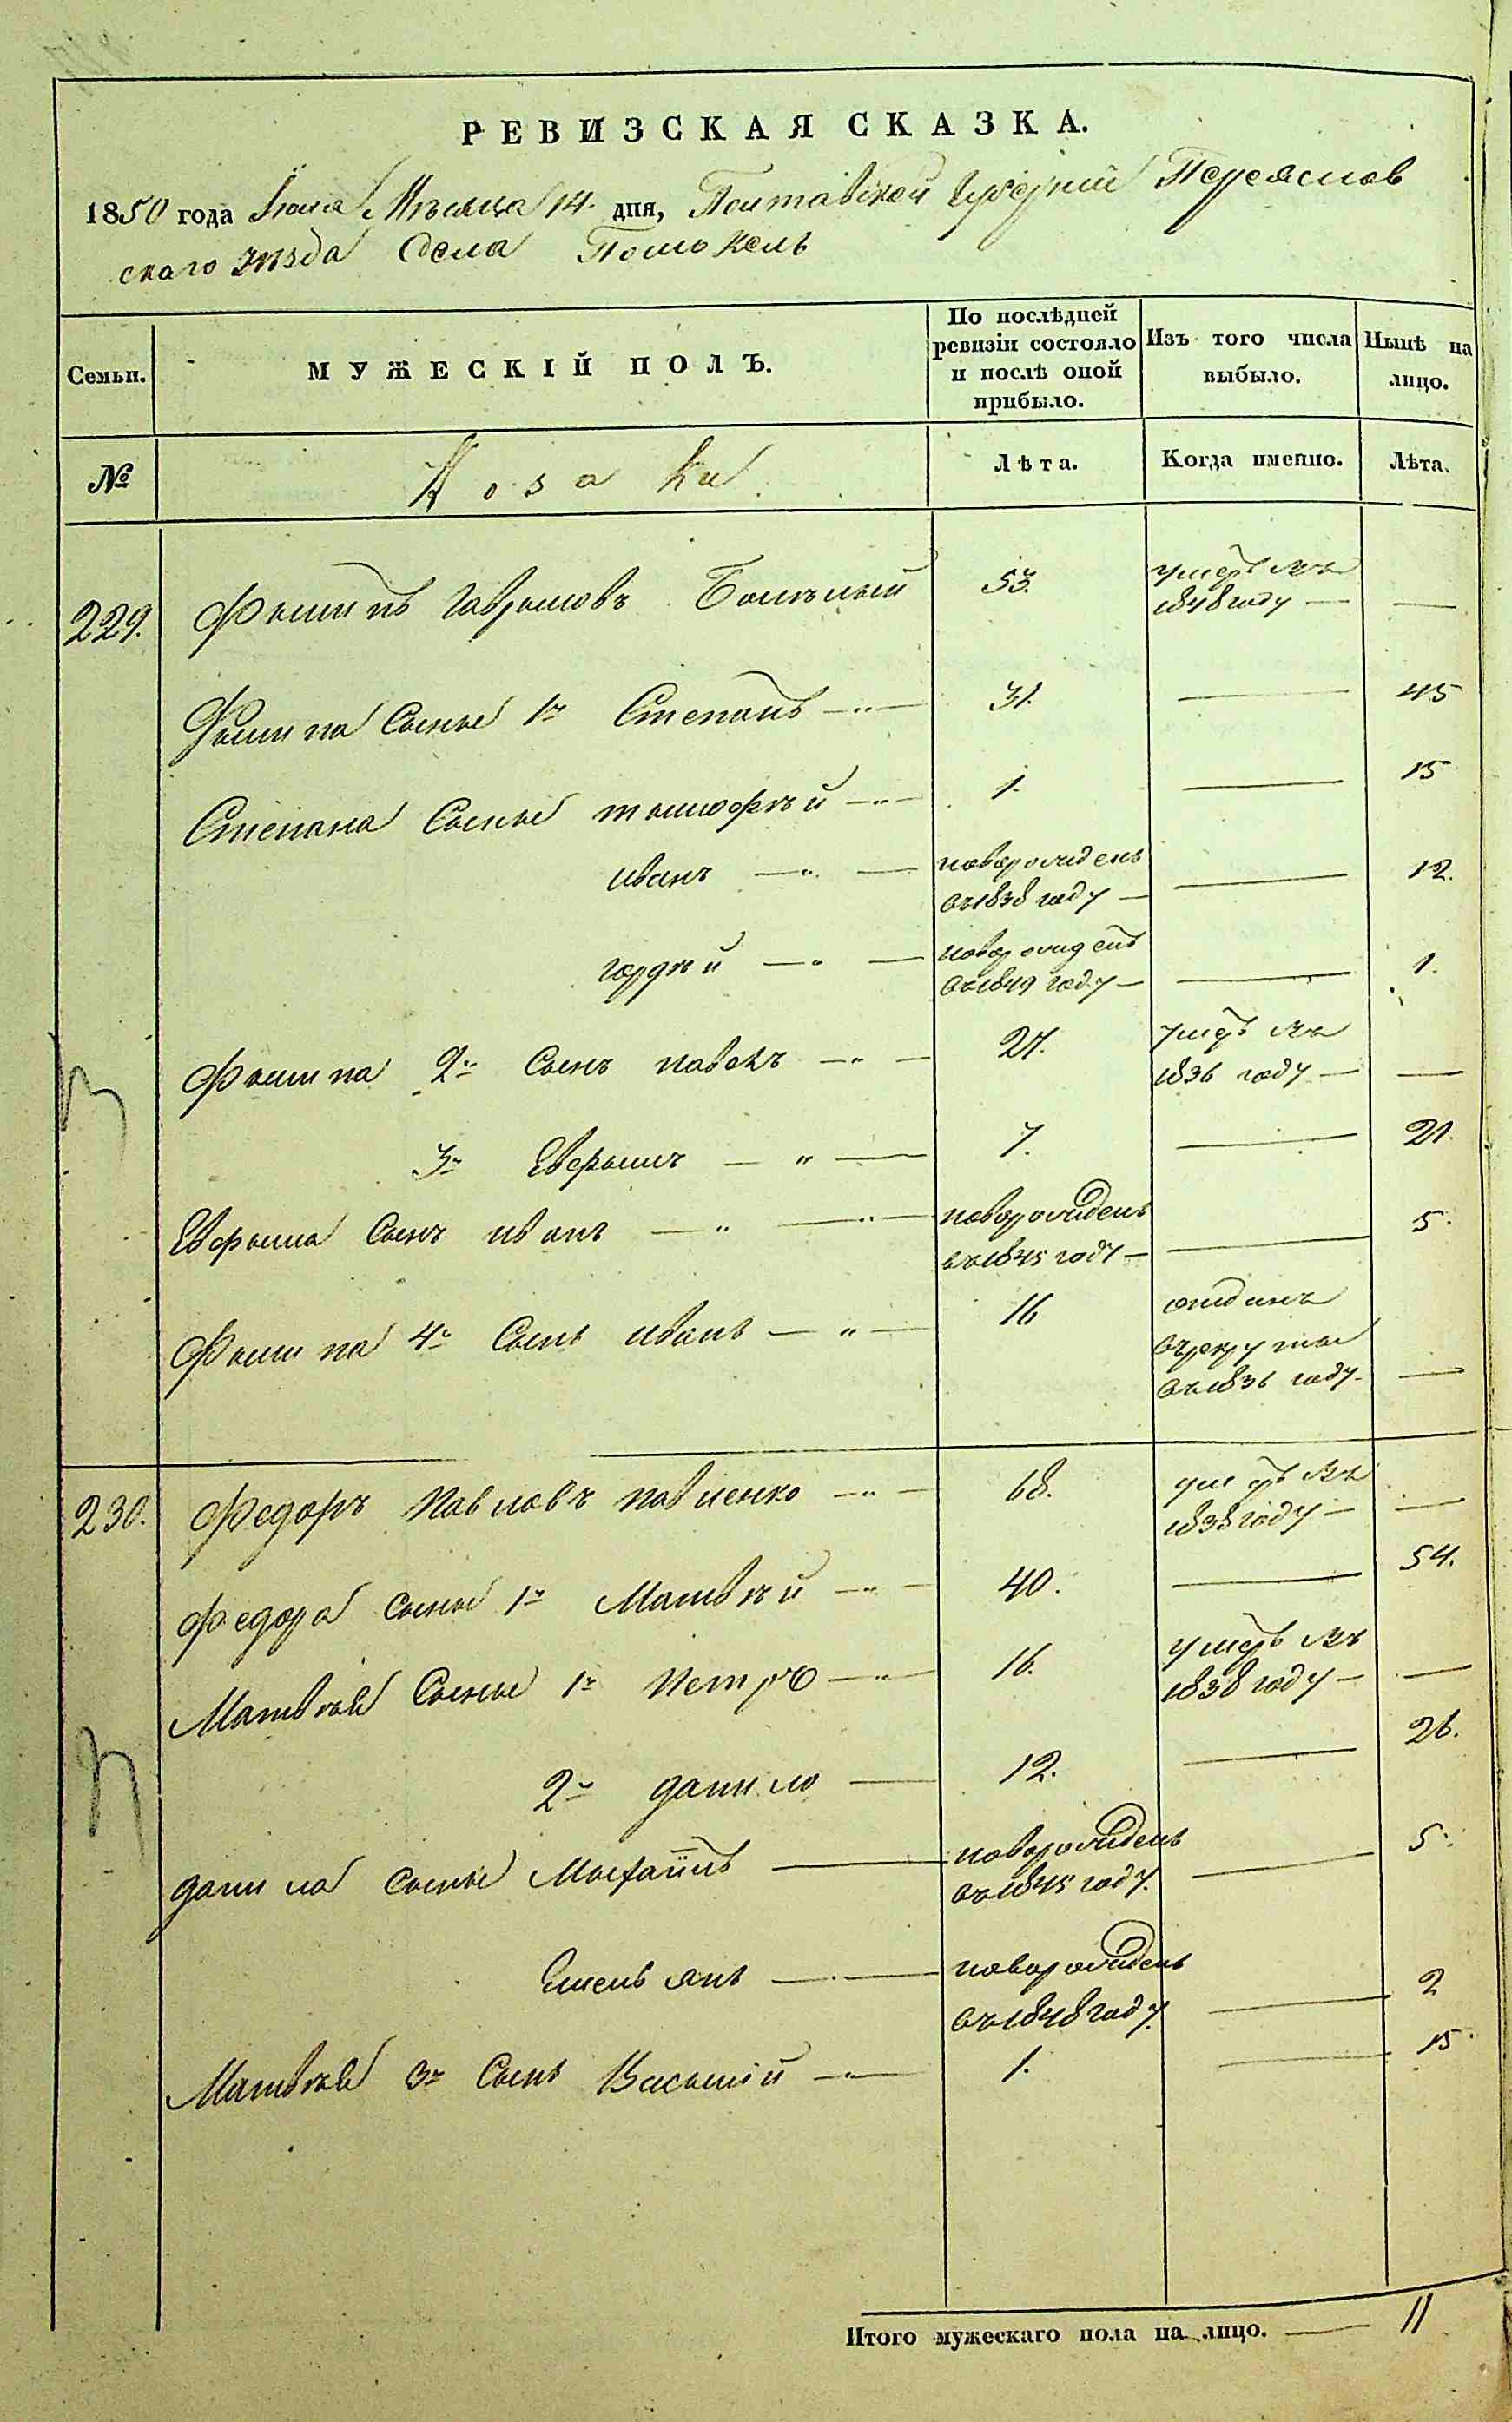 РЕВИЗСКАЯ СКАЗКА.
1850 года Іюля Мѣсяца 14. дня, Полтавской Губерніи Переяслав
скаго уѣзда Села Помокель
Семьи. МУЖЕСКІЙ ПОЛЪ. По послѣдней ревизіи состояло и послѣ оной прибыло. Изъ того числа выбыло. Нынѣ на лицо.
№ Козаки. Лѣта. Когда именно. Лѣта.
229. Филипъ Гавриловъ 53. умеръ въ 1848 году — —
Филипа Сыны 1й Степанъ —"— 31. — 45
Степана Сыны тимофѣй —"— 1. — 15
иванъ —"— новорожденъ въ 1838 году — — 12.
гордѣй —"— новорожденъ въ 1849 году — — 1.
Филипа 2й Сынъ павелъ —"— 27. умеръ въ 1836 году — —
3й Евфимъ —"— 7. — 21.
Евфима Сынъ иванъ —"— —"— новорожденъ въ 1845 году — — 5.
Филипа 4й Сынъ иванъ —"— 16 отданъ въ рекруты въ 1836 году. —
230. Федоръ Павловъ павленко —"— 68. умеръ въ 1838 году — —
Федора сыны 1й Матвѣй —"— 40. — 54.
Матвѣя Сыны 1й Петръ —"— 16. умеръ въ 1838 году — —
2й данило — 12. — 26.
данила сыны — новорожденъ въ 1845 году. — 5.
Емельянъ — новорожденъ въ 1848 году. — 2
Матвѣя 3й Сынъ Василій —"— 1. — 15
Итого мужескаго пола на лицо. — 11